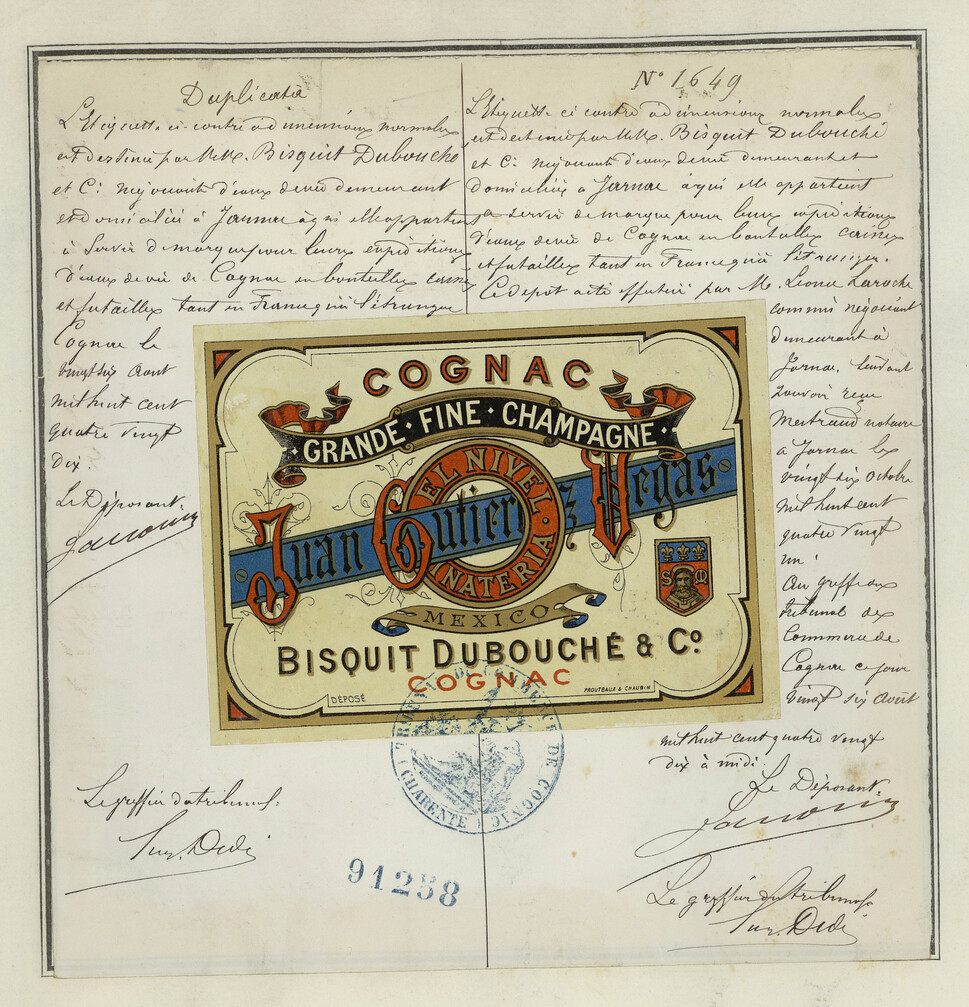 Duplicata
L'Etiquette ci-contre de dimensions normales
est destinée par MM. Bisquit Dubouché
et Cie négociants d'eaux de vie demeurant
et domiciliés à Jarnac à qui elle appartient
à servir de marque pour leurs expéditions
d'eaux de vie de Cognac en bouteilles, caisses
et futailles tant en France qu'à l'étranger
Cognac le
vingt six août
mil huit cent
quatre vingt
dix.
Le Déposant:
Le greffier du tribunal:
N° 1649
L'Etiquette ci contre de dimensions normales
est destinée par MM. Bisquit Dubouché
et Cie négociants d'eaux de vie demeurant et
domiciliés à Jarnac à qui elle appartient
à servir de marque pour leurs expéditions
d'eaux de vie de Cognac en bouteilles caisses
et futailles tant en France qu'à l'étranger.
Ce dépôt a été effectué par M. Léonce Laroche
commis négociant
demeurant à
Jarnac, suivant
pouvoir reçu
notaire
à Jarnac les
vingt six octobre
mil huit cent
quatre vingt
un
Au greffe du
tribunal de
Commerce de
Cognac ce jour
vingt six août
mil huit cent quatre vingt
dix à midi.
Le Déposant:
Le greffier du tribunal
COGNAC
GRANDE · FINE · CHAMPAGNE
EL NIVEL
Juan Gutierrez Vegas
NATERIA
MEXICO
S M
BISQUIT DUBOUCHÉ & Co.
COGNAC
DÉPOSÉ
PROUTEAUX & CHAUBIN
TRIBUNAL DE COMMERCE DE COGNAC
(CHARENTE)
91258